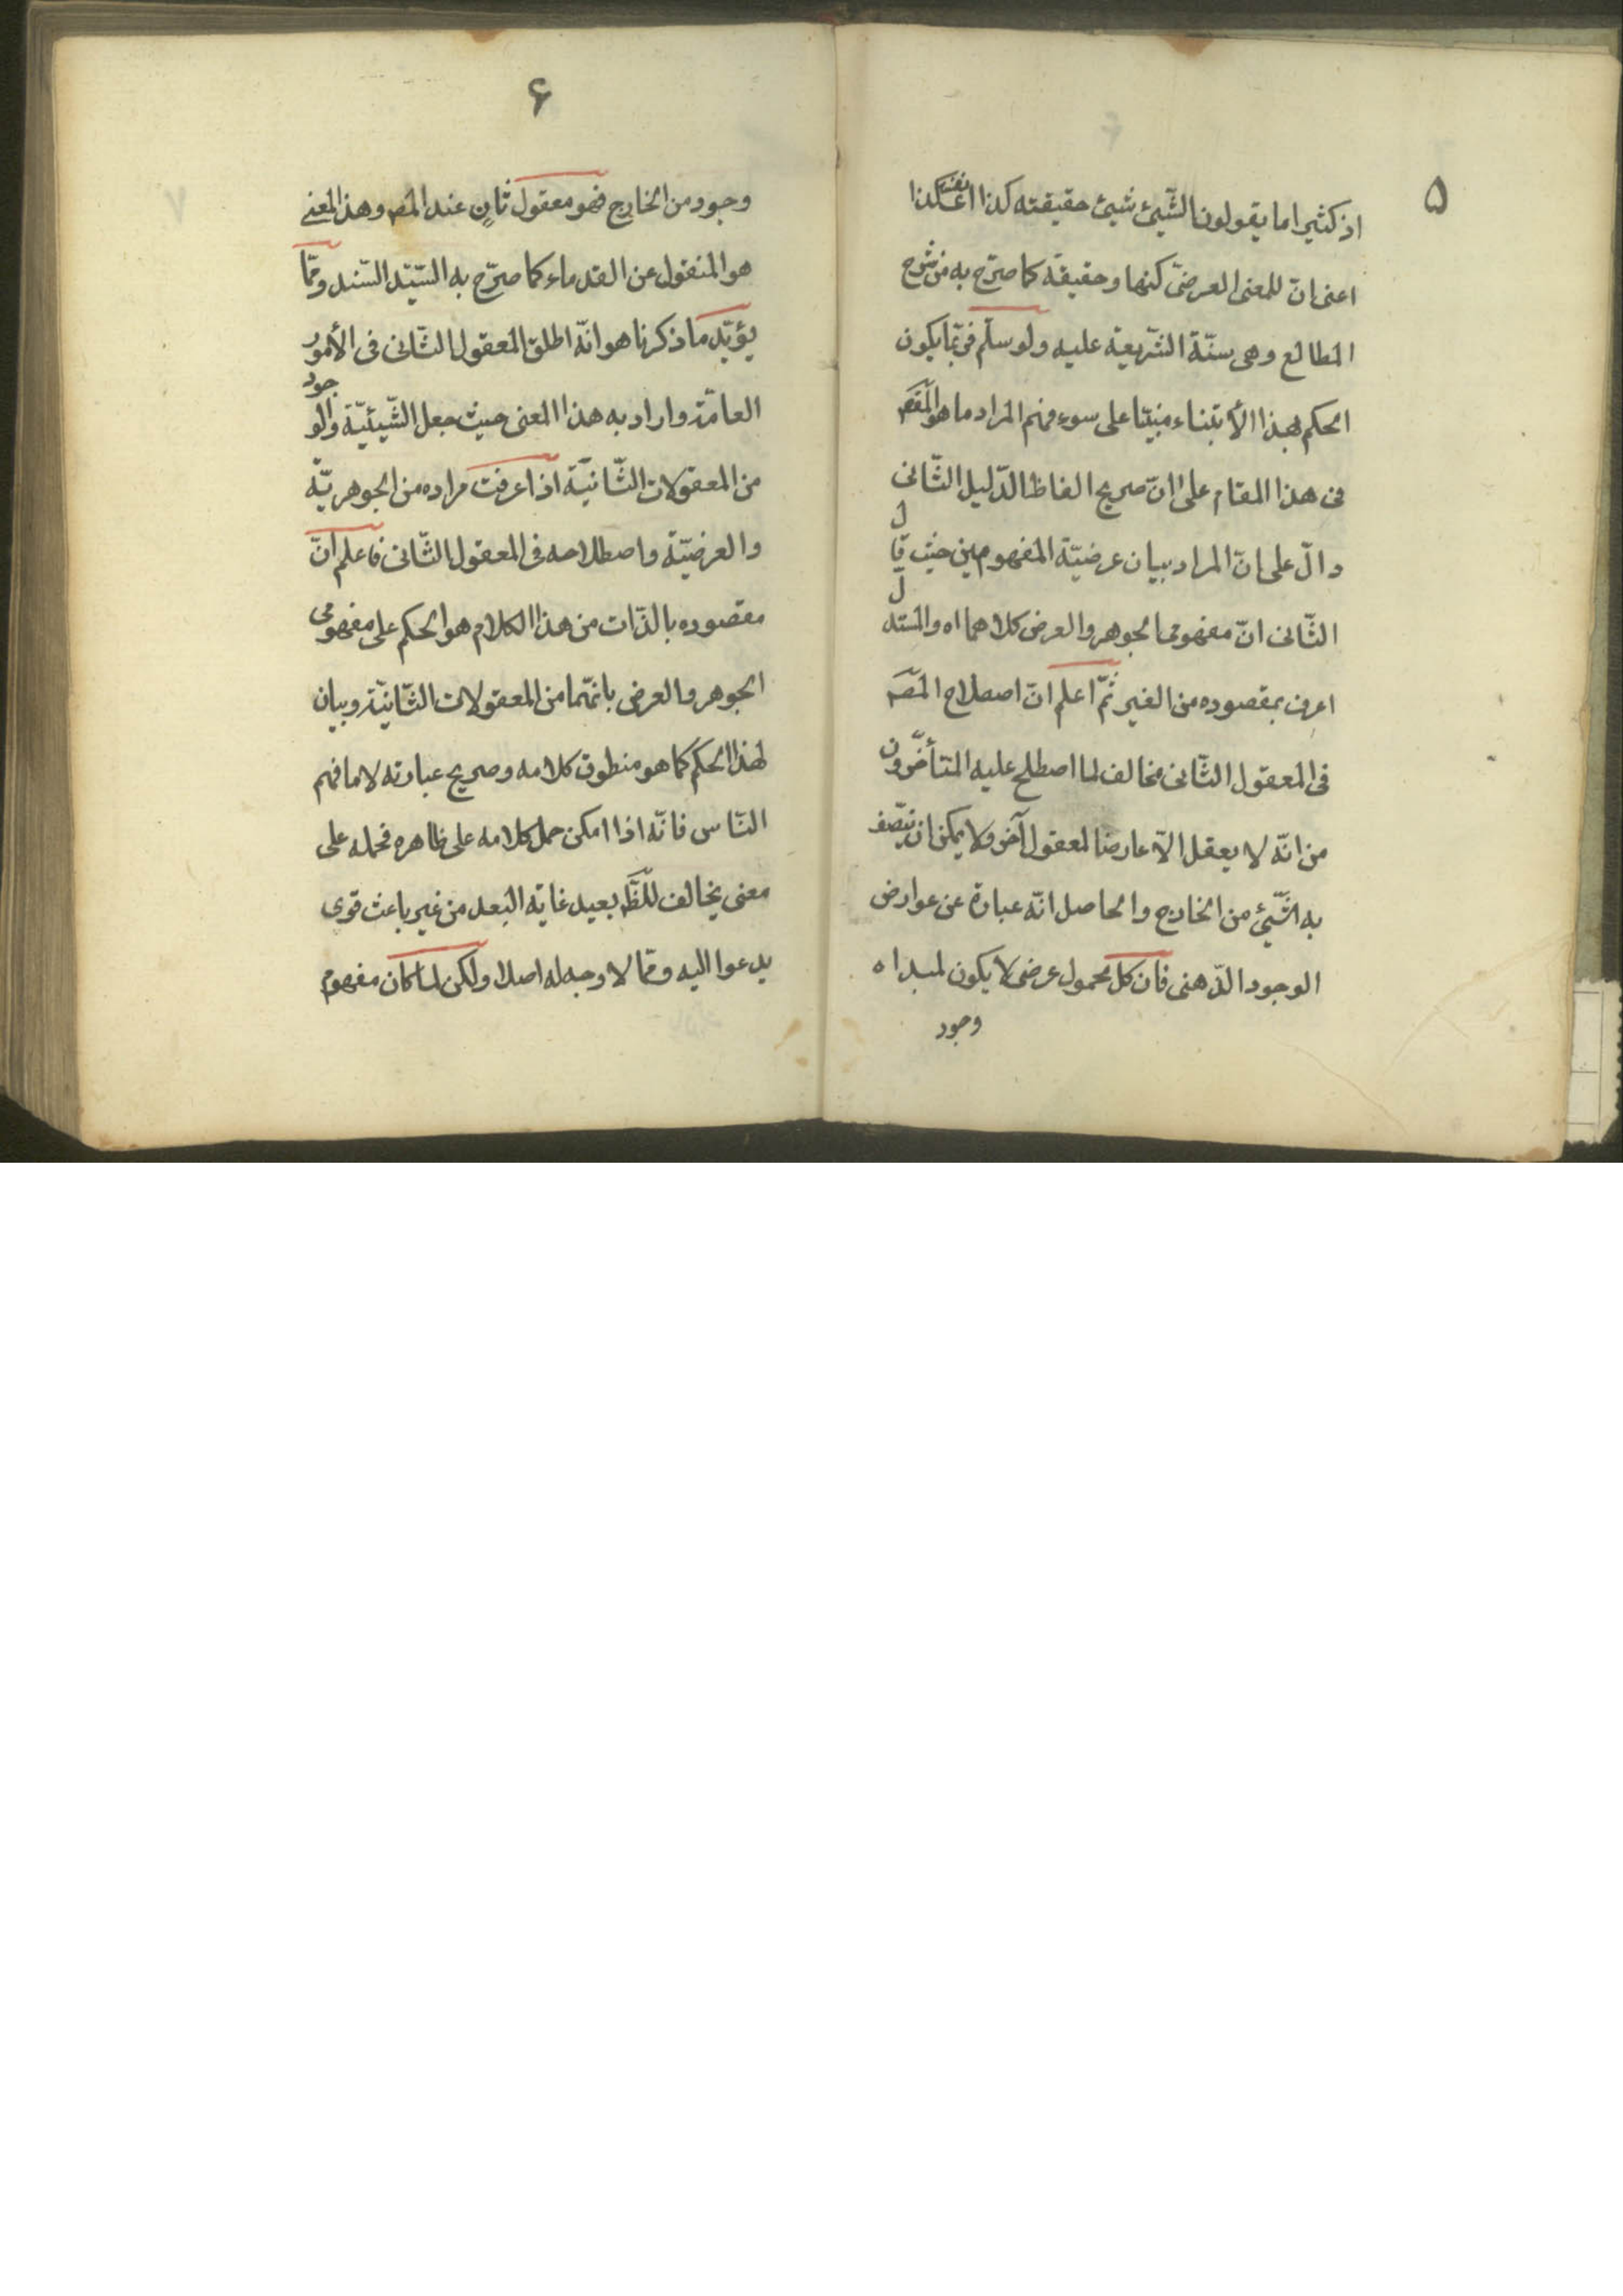 ۵
اذ كثيرا ما يقولون الشّيئ شيئ حقيقته كذا نفسه كذا
اعنى انّ للمعنى العرضىّ كنها و حقيقة كما صرّح به فى شرح
المطالع و هى سنّة الشّريعة عليه و لو سلّم فربّما يكون
الحكم بهذا الأبتناء مبنيّا على سوء فهم المراد ما هو المقصّ
فى هذا المقام على انّ صريح الفاظ الدّليل الثّانى
دالّ على انّ المراد بيان عرضيّة المفهومين حيث قال
الثّانى انّ مفهومى الجوهر و العرض كلاهما اه و المستدلّ
اعرف بمقصوده من الغير ثمّ اعلم انّ اصطلاح المصّ
فى المعقول الثّانى مخالف لما اصطلح عليه المتأخّرون
من انّه لا يعقل الّا عارضا لمعقول آخر و لا يمكن ان يتّصف
به الشّيئ من الخارج و الحاصل انّه عبارة عن عوارض
الوجود الذّهنى فان كل محمول عرضى لا يكون لمبداه
وجود
۶
وجود من الخارج فهو معقول ثانٍ عند المصّ و هذا المعنى
هو المنقول عن القدماء كما صرّح به السّيّد السّند و ممّا
يؤيّد ما ذكرنا هو انّه اطلق المعقول الثّانى فى الأمور
العامّة و اراد به هذا المعنى حيث جعل الشّيئيّة و الوجود
من المعقولات الثّانيّة اذا عرفت مراده من الجوهريّة
و العرضيّة و اصطلاحه فى المعقول الثّانى فاعلم انّ
مقصوده بالذّات من هذا الكلام هو الحكم على مفهومى
الجوهر و العرض بانّهما من المعقولات الثّانيّة و بيان
لهذا الحكم كما هو منطوق كلامه و صريح عبارته لا ما فهم
النّاس فانّه اذا امكن حمل كلامه على ظاهره فحمله على
معنى يخالف للّظّ بعيد غاية البعد من غير باعث قوى
يدعوا اليه و ممّا لا وجه له اصلا و لكن لما كان مفهوم